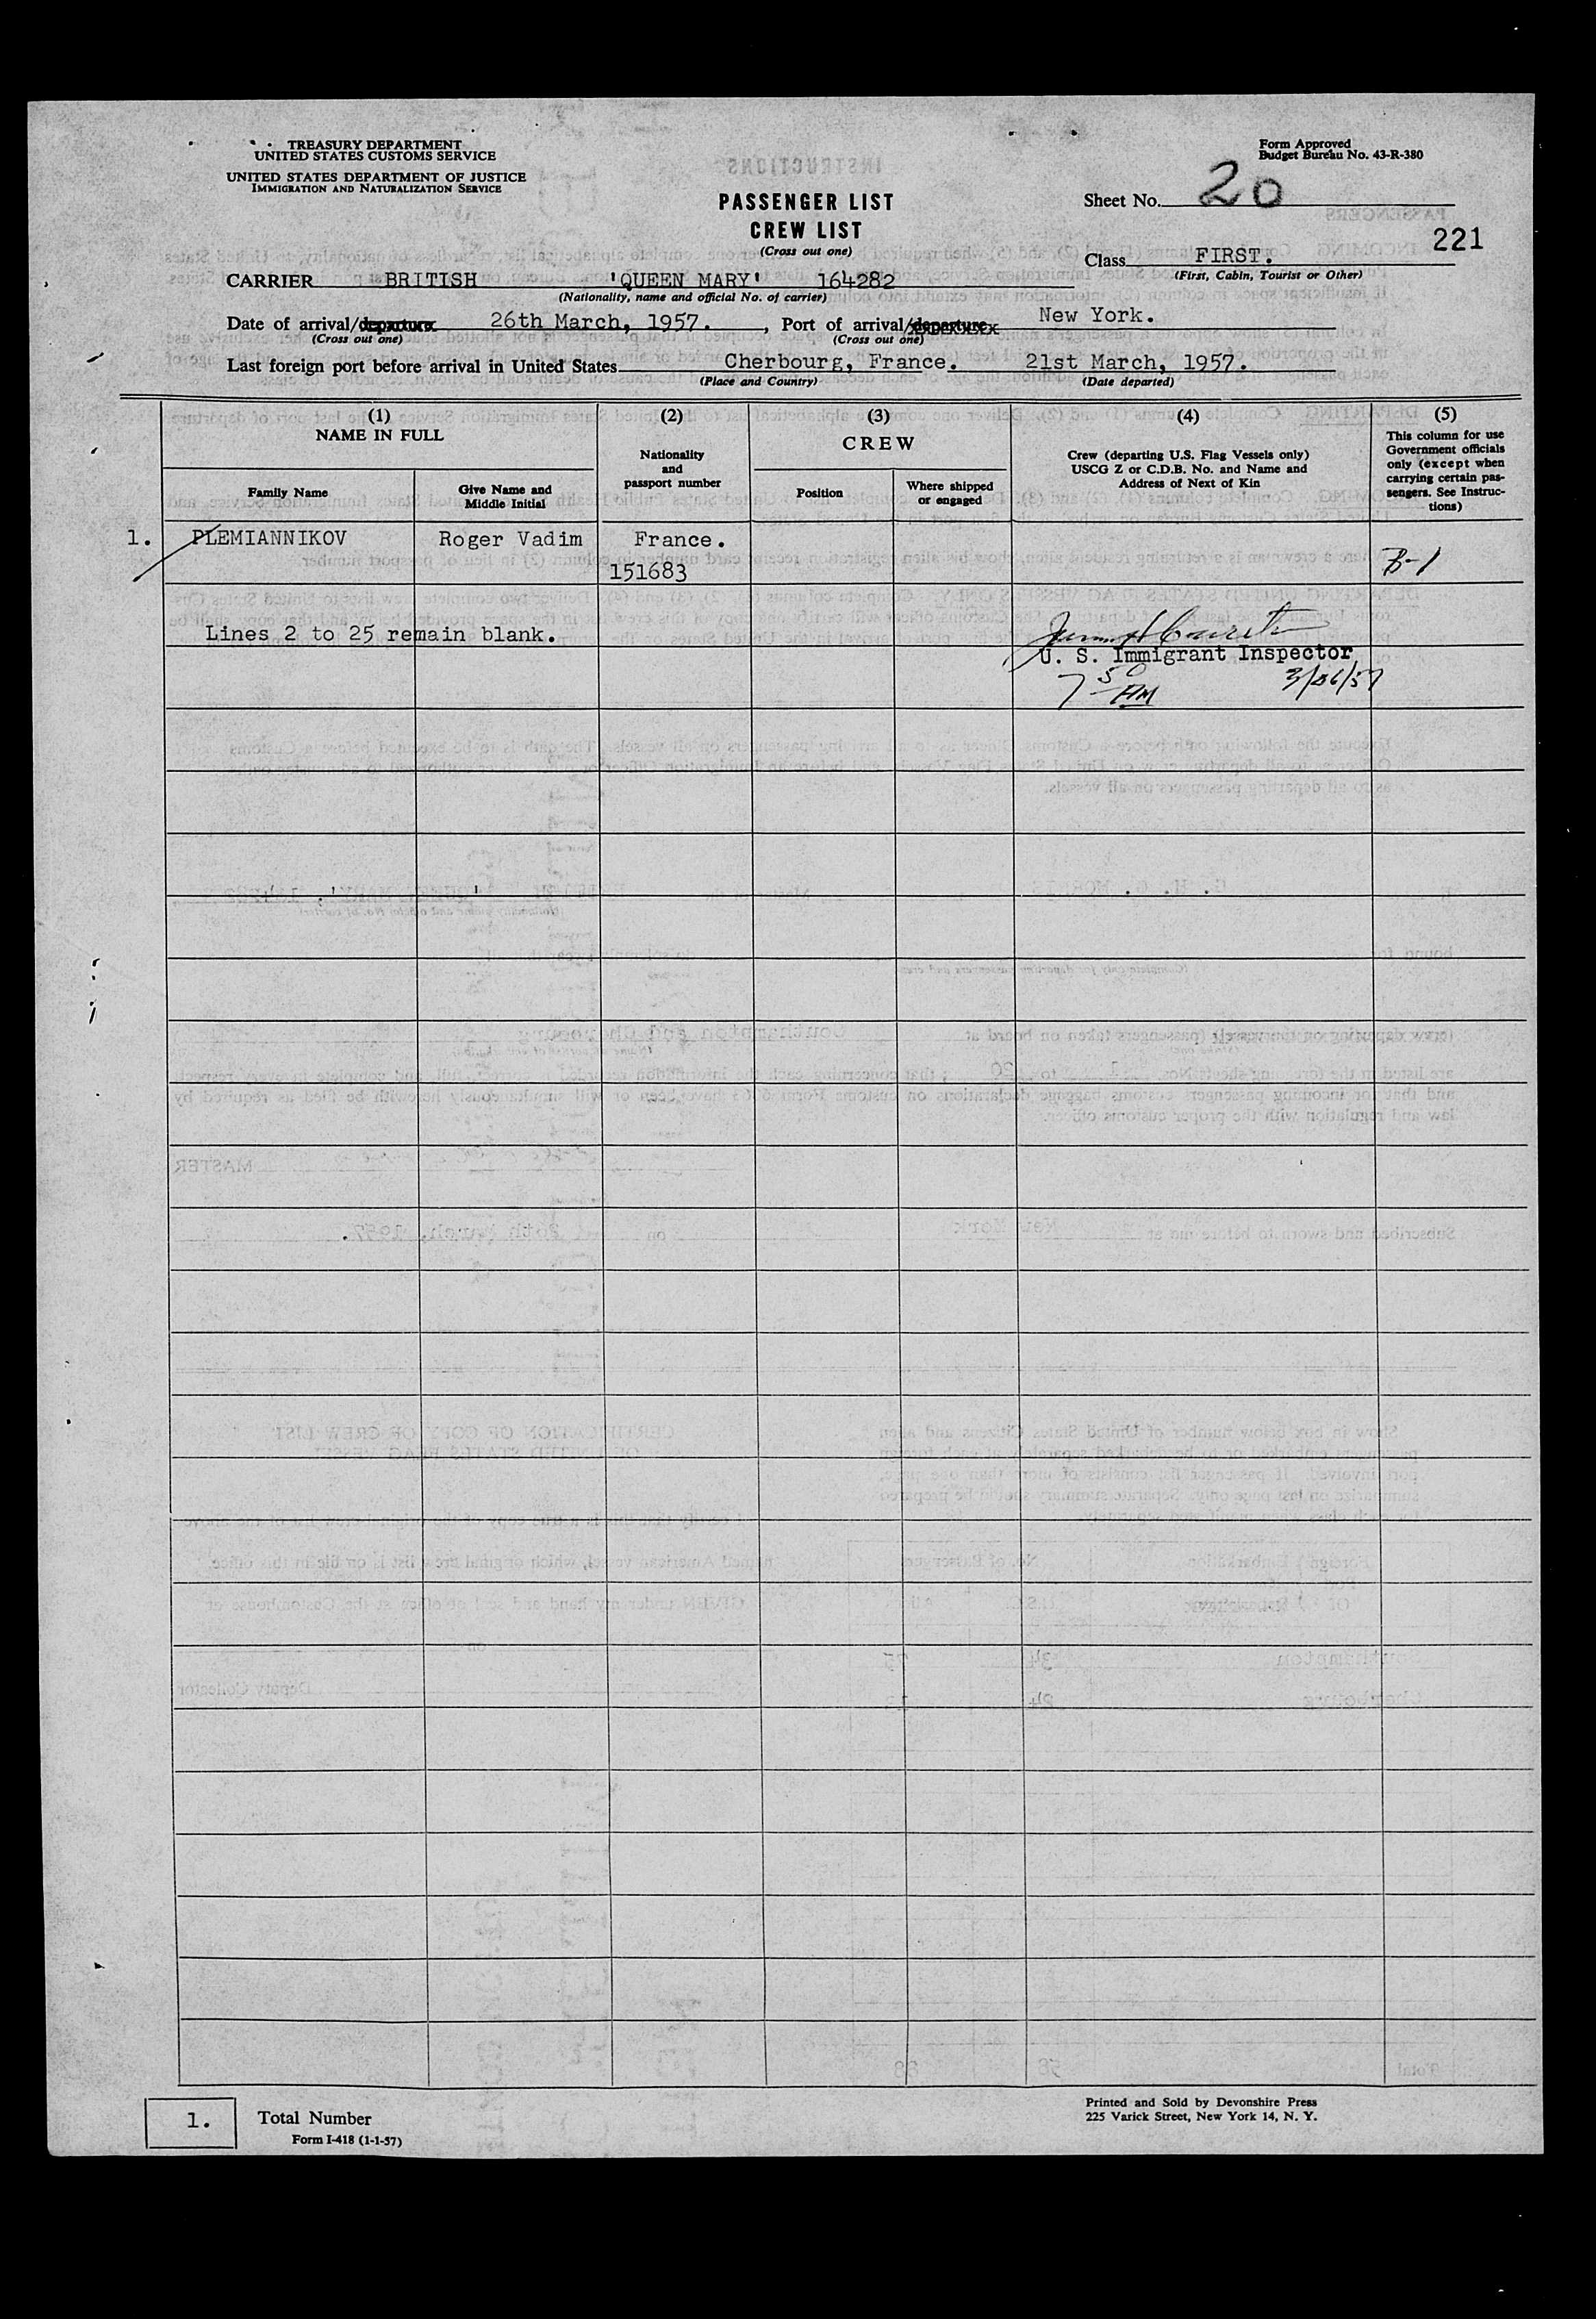 TREASURY DEPARTMENT
UNITED STATES CUSTOMS SERVICE
UNITED STATES DEPARTMENT OF JUSTICE
IMMIGRATION AND NATURALIZATION SERVICE
Form Approved
Budget Bureau No. 43-R-380
PASSENGER LIST
CREW LIST
(Cross out one)
Sheet No. 20
221
Class FIRST.
(First, Cabin, Tourist or Other)
CARRIER BRITISH 'QUEEN MARY' 164282
(Nationality, name and official No. of carrier)
Date of arrival/departure 26th March, 1957. , Port of arrival/departure New York.
(Cross out one) (Cross out one)
Last foreign port before arrival in United States Cherbourg, France. 21st March, 1957.
(Place and Country) (Date departed)
(1) (2) (3) (4) (5)
NAME IN FULL
Family Name
Give Name and
Middle Initial
Nationality
and
passport number
CREW
Position
Where shipped
or engaged
Crew (departing U.S. Flag Vessels only)
USCG Z or C.D.B. No. and Name and
Address of Next of Kin
This column for use
Government officials
only (except when
carrying certain pas-
sengers. See Instruc-
tions)
1. PLEMIANNIKOV Roger Vadim France.
151683 B-1
Lines 2 to 25 remain blank.
U. S. Immigrant Inspector
7 50 AM 3/26/57
1. Total Number
Form I-418 (1-1-57)
Printed and Sold by Devonshire Press
225 Varick Street, New York 14, N. Y.